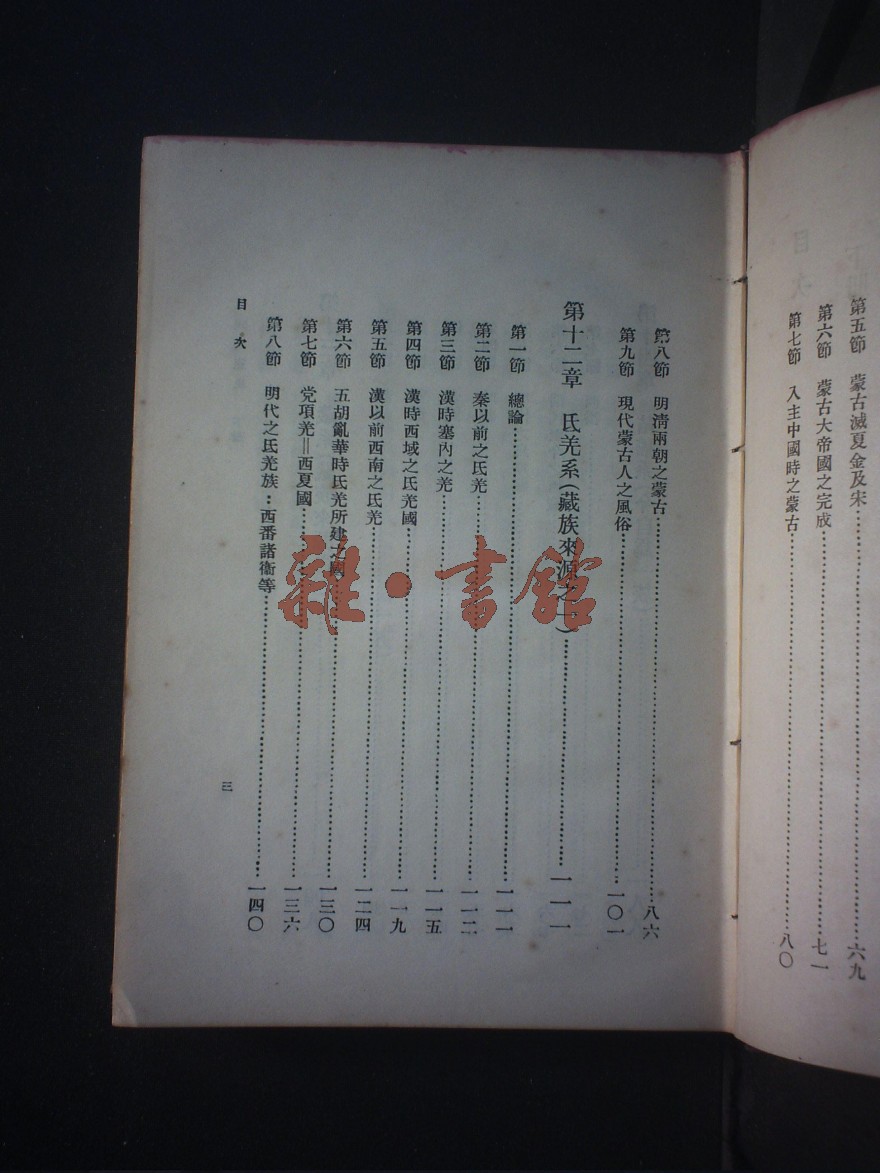 第五節　蒙古滅夏金及宋……六九
第六節　蒙古大帝國之完成……七一
第七節　入主中國時之蒙古……八〇
第八節　明清兩朝之蒙古……八六
第九節　現代蒙古人之風俗……一〇一
第十二章　氐羌系(藏族來源之一)……一一一
第一節　總論……一一一
第二節　秦以前之氐羌……一一二
第三節　漢時塞內之羌……一一五
第四節　漢時西域之氐羌國……一一九
第五節　漢以前西南之氐羌……一二四
第六節　五胡亂華時氐羌所建之國……一三〇
第七節　党項羌＝西夏國……一三六
第八節　明代之氐羌族：西番諸衞等……一四〇
目　次
三
雜·書館